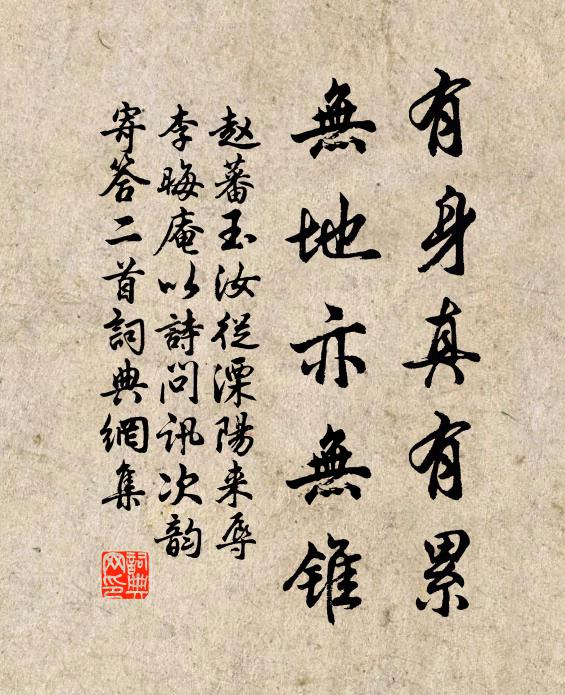 有身真有累
無地亦無錐
赵蕃玉汝從溧陽来辱
李晦庵以詩問訊次韵
寄答二首詞典網集
詞典网印